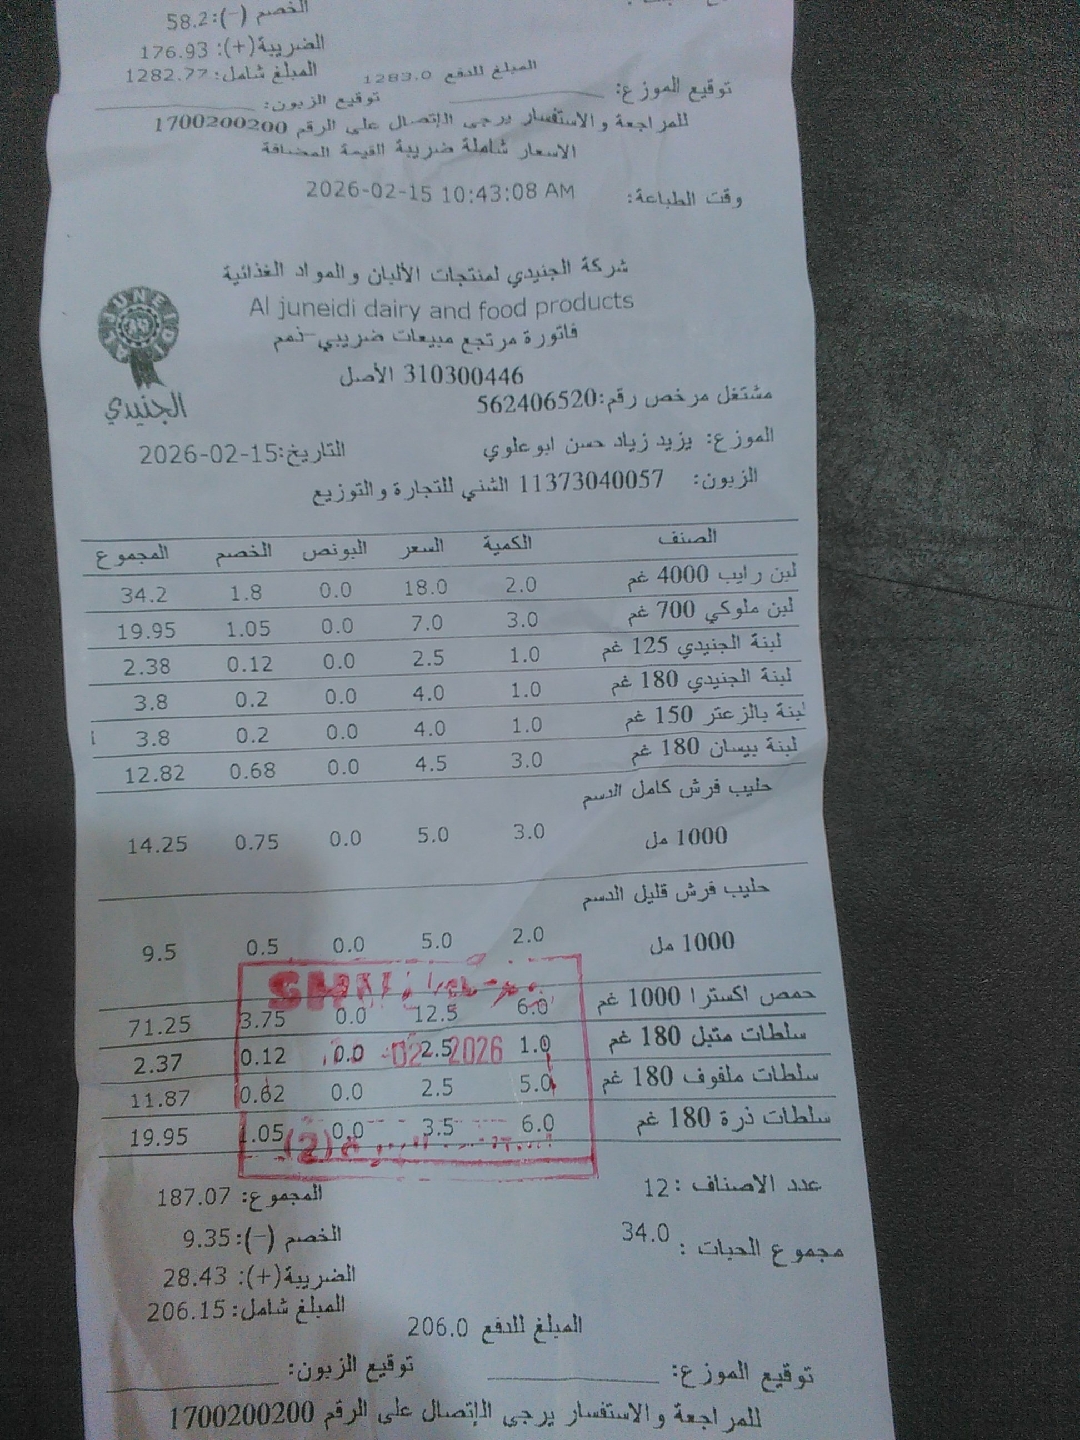 الخصم (-): 58.2
الضريبة(+): 176.93
المبلغ شامل: 1282.77
المبلغ للدفع 1283.0
توقيع الموزع:
توقيع الزبون:
للمراجعة والاستفسار يرجى الإتصال على الرقم 1700200200
الاسعار شاملة ضريبة القيمة المضافة
وقت الطباعة: 2026-02-15 10:43:08 AM
شركة الجنيدي لمنتجات الألبان والمواد الغذائية
Al juneidi dairy and food products
فاتورة مرتجع مبيعات ضريبي-ذمم
310300446 الأصل
الجنيدي
مشتغل مرخص رقم:562406520
الموزع: يزيد زياد حسن ابو علوي
التاريخ:2026-02-15
الزبون: 11373040057 الشني للتجارة والتوزيع
الصنف الكمية السعر البونص الخصم المجموع
لبن رايب 4000 غم 2.0 18.0 0.0 1.8 34.2
لبن ملوكي 700 غم 3.0 7.0 0.0 1.05 19.95
لبنة الجنيدي 125 غم 1.0 2.5 0.0 0.12 2.38
لبنة الجنيدي 180 غم 1.0 4.0 0.0 0.2 3.8
لبنة بالزعتر 150 غم 1.0 4.0 0.0 0.2 3.8
لبنة بيسان 180 غم 3.0 4.5 0.0 0.68 12.82
حليب فرش كامل الدسم
1000 مل 3.0 5.0 0.0 0.75 14.25
حليب فرش قليل الدسم
1000 مل 2.0 5.0 0.0 0.5 9.5
حمص اكسترا 1000 غم 6.0 12.5 0.0 3.75 71.25
سلطات متبل 180 غم 1.0 2.5 0.0 0.12 2.37
سلطات ملفوف 180 غم 5.0 2.5 0.0 0.62 11.87
سلطات ذرة 180 غم 6.0 3.5 0.0 1.05 19.95
02 2026
(2)
عدد الاصناف : 12
المجموع: 187.07
مجموع الحبات : 34.0
الخصم (-): 9.35
الضريبة(+): 28.43
المبلغ شامل: 206.15
المبلغ للدفع 206.0
توقيع الموزع:
توقيع الزبون:
للمراجعة والاستفسار يرجى الإتصال على الرقم 1700200200